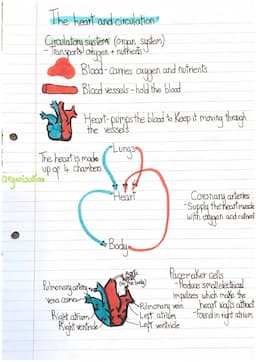 The heart and circulation
Circulatory system (organ system)
- Transports oxygen + nutrients
Blood - carries oxygen and nutrients
Blood vessels - hold the blood
Heart - pumps the blood to keep it moving through
the vessels
The heart is made
up of 4 chambers
Lungs
organisation
Heart
Coronary arteries
- Supply the heart muscle
with oxygen and nutrients
Body
Pulmonary artery
vena cava
Right atrium
Right ventricle
Aorta
(to the body)
Pulmonary vein
Left atrium
Left ventricle
Pacemaker cells
- Produce small electrical
impulses which make the
heart walls contract
- found in right atrium